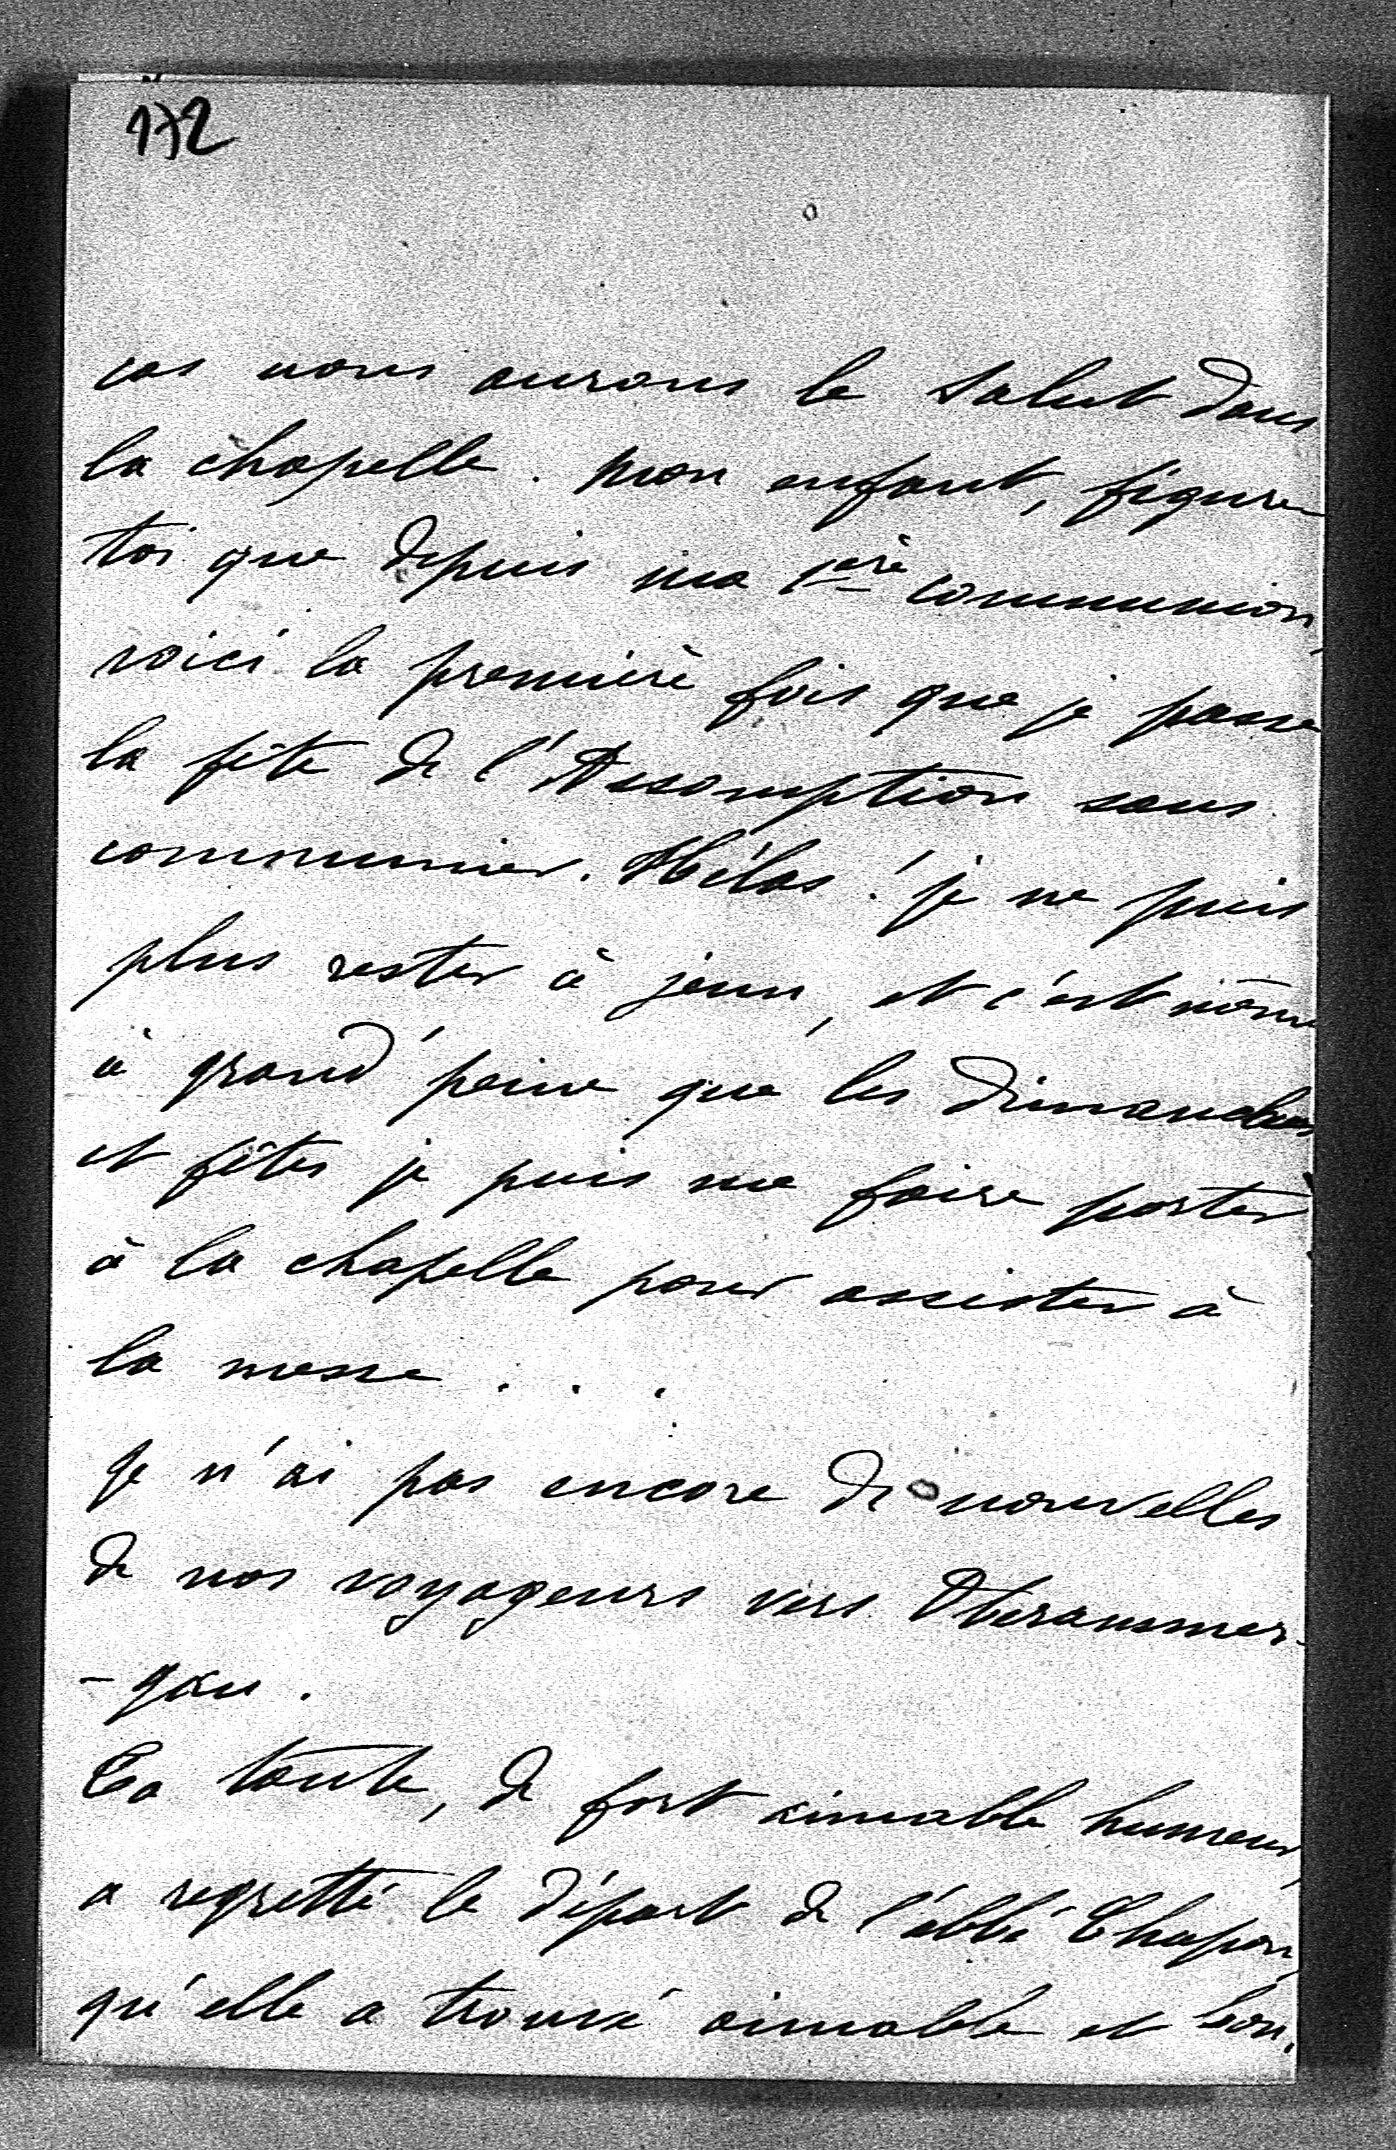 172
cas nous aurons le Salut dans
la chapelle. Mon enfant, figure
toi que depuis ma 1ère communion,
voici la première fois que je passe
la fête de l'Assomption sans
communier. Hélas! je ne puis
plus rester à jeun, et c'est même
à grand'peine que les dimanches
et fêtes je puis me faire porter
à la chapelle pour assister à
la messe . . .
Je n'ai pas encore de nouvelles
de nos voyageurs vers Oberammer-
-gau.
Ta tante, de fort aimable humeur,
a regretté le départ de l'abbé Chapon,
qu'elle a trouvé aimable et bon.